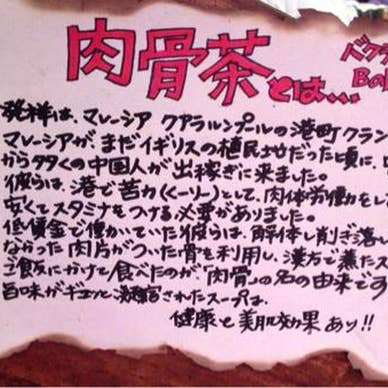 肉骨茶とは...
バクテ
発祥は、マレーシア クアラルンプールの港町クラン
マレーシアが、まだイギリスの植民地だった頃に、
から多くの中国人が出稼ぎに来ました。
彼らは、港で苦力(くーりー)として、肉体労働をし
安くてスタミナをつける必要がありました。
低賃金で働いていた彼らは、解体し削ぎ落
なかった肉片がついた骨を利用し、漢方で煮たス
ご飯にかけて食べたのが「肉骨」の名の由来です
旨味がギュッと凝縮されたスープは、
健康と美肌効果あり!!